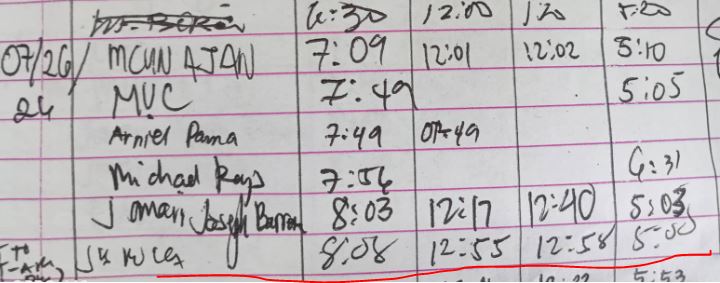 6:30 12:00 1:20 5:20
07/26/ MCHN AJAN 7:09 12:01 12:02 5:10
24 MUC 7:49 5:05
Arniel Pama 7:49 07:49
Michael Rays 7:56 6:31
Jomari Joseph Barron 8:03 12:17 12:40 5:03
8:08 12:55 12:58 5:00
5:53